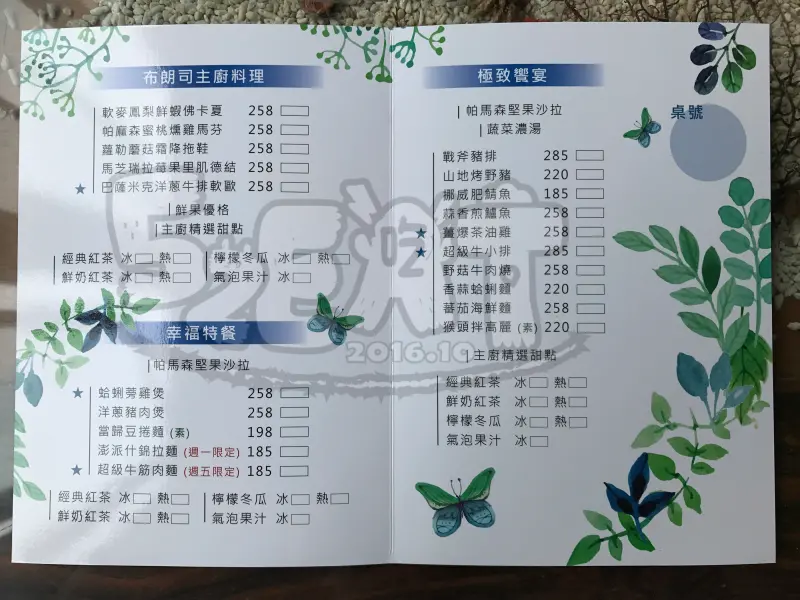 布朗司主廚料理
軟麥鳳梨鮮蝦佛卡夏 258
帕麻森蜜桃燻雞馬芬 258
蘿勒蘑菇霜降拖鞋 258
馬芝瑞拉莓果里肌德結 258
★ 巴薩米克洋蔥牛排軟歐 258
鮮果優格
主廚精選甜點
經典紅茶 冰 熱 檸檬冬瓜 冰 熱
鮮奶紅茶 冰 熱 氣泡果汁 冰
幸福特餐
帕馬森堅果沙拉
★ 蛤蜊蒡雞煲 258
洋蔥豬肉煲 258
當歸豆捲麵 (素) 198
澎派什錦拉麵 (週一限定) 185
★ 超級牛筋肉麵 (週五限定) 185
經典紅茶 冰 熱 檸檬冬瓜 冰 熱
鮮奶紅茶 冰 熱 氣泡果汁 冰
極致饗宴
桌號
帕馬森堅果沙拉
蔬菜濃湯
戰斧豬排 285
山地烤野豬 220
挪威肥鯖魚 185
蒜香煎鱸魚 258
★ 薑爆茶油雞 258
★ 超級牛小排 285
野菇牛肉燒 258
香蒜蛤蜊麵 220
蕃茄海鮮麵 258
猴頭拌高麗 (素) 220
主廚精選甜點
經典紅茶 冰 熱
鮮奶紅茶 冰 熱
檸檬冬瓜 冰 熱
氣泡果汁 冰
2016.10